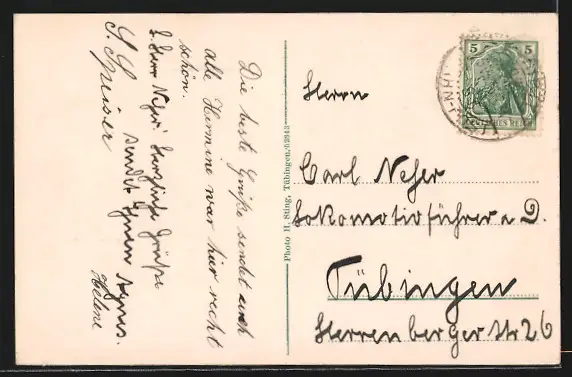 Die beste Grüße sendet euch
alle Hermine war hier recht
schön.
L. Herr Neher herzliche Grüße
sendet Ihnen Agnes.
Helene
Photo H. Sting, Tübingen.
Herrn
Carl Neher
Lokomotivführer a D.
Tübingen
Herrenberger Str 26
5 5
DEUTSCHES REICH